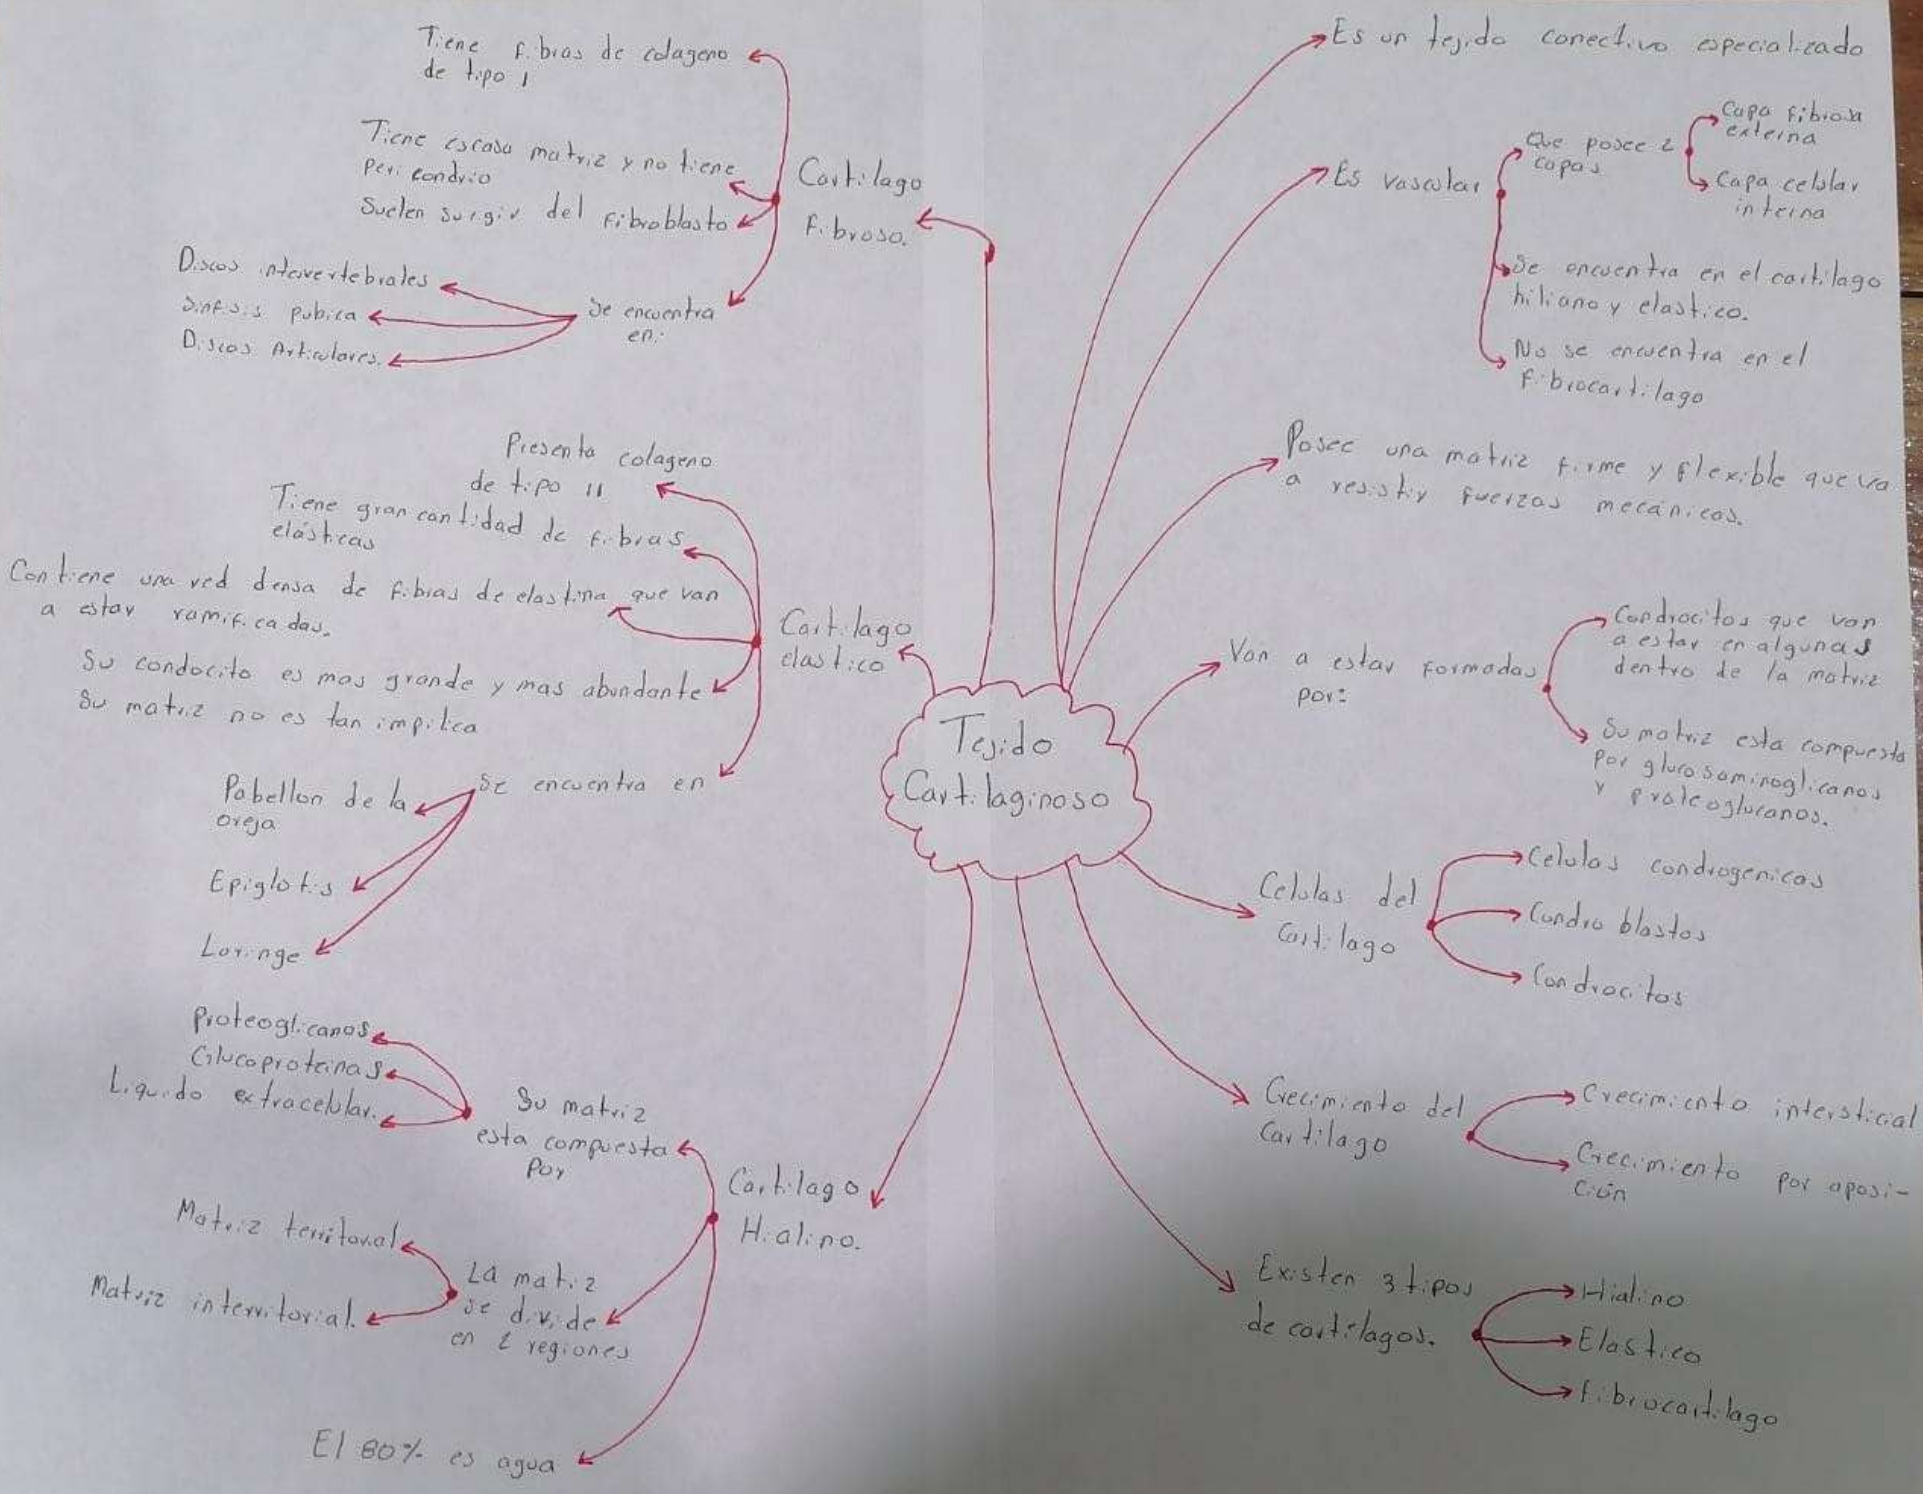 Tejido
Cartilaginoso
Es un tejido conectivo especializado
Es vascular
Que posee 2
capas
Capa fibrosa
externa
Capa celular
interna
Se encuentra en el cartilago
hiliano y elastico.
No se encuentra en el
fibrocartilago
Posee una matriz firme y flexible que va
a resistir fuerzas mecánicas.
Van a estar formadas
por:
Condrocitos que van
a estar en algunas
dentro de la matriz
Su matriz esta compuesta
por glucosaminoglicanos
y proteoglucanos.
Celulas del
Cartilago
Celulas condrogenicas
Condro blastos
Condrocitos
Crecimiento del
Cartilago
Crecimiento intersticial
Crecimiento por aposi-
ción
Existen 3 tipos
de cartilagos.
Hialino
Elastico
fibrocartilago
Cartilago
Fibroso.
Tiene fibras de colageno
de tipo I
Tiene escasa matriz y no tiene
pericondrio
Suelen surgir del fibroblasto
Se encuentra
en:
Discos intervertebrales
Sinfisis pubica
Discos Articulares.
Cartilago
elastico
Presenta colageno
de tipo II
Tiene gran cantidad de fibras
elásticas
Contiene una red densa de fibras de elastina que van
a estar ramificadas.
Su condocito es mas grande y mas abundante
Su matriz no es tan implica
Se encuentra en
Pabellon de la
oreja
Epiglotis
Laringe
Cartilago
Hialino.
Su matriz
esta compuesta
por
Proteoglicanos
Glucoproteinas
Liquido extracelular.
La matriz
se divide
en 2 regiones
Matriz territorial
Matriz interritorial.
El 80% es agua